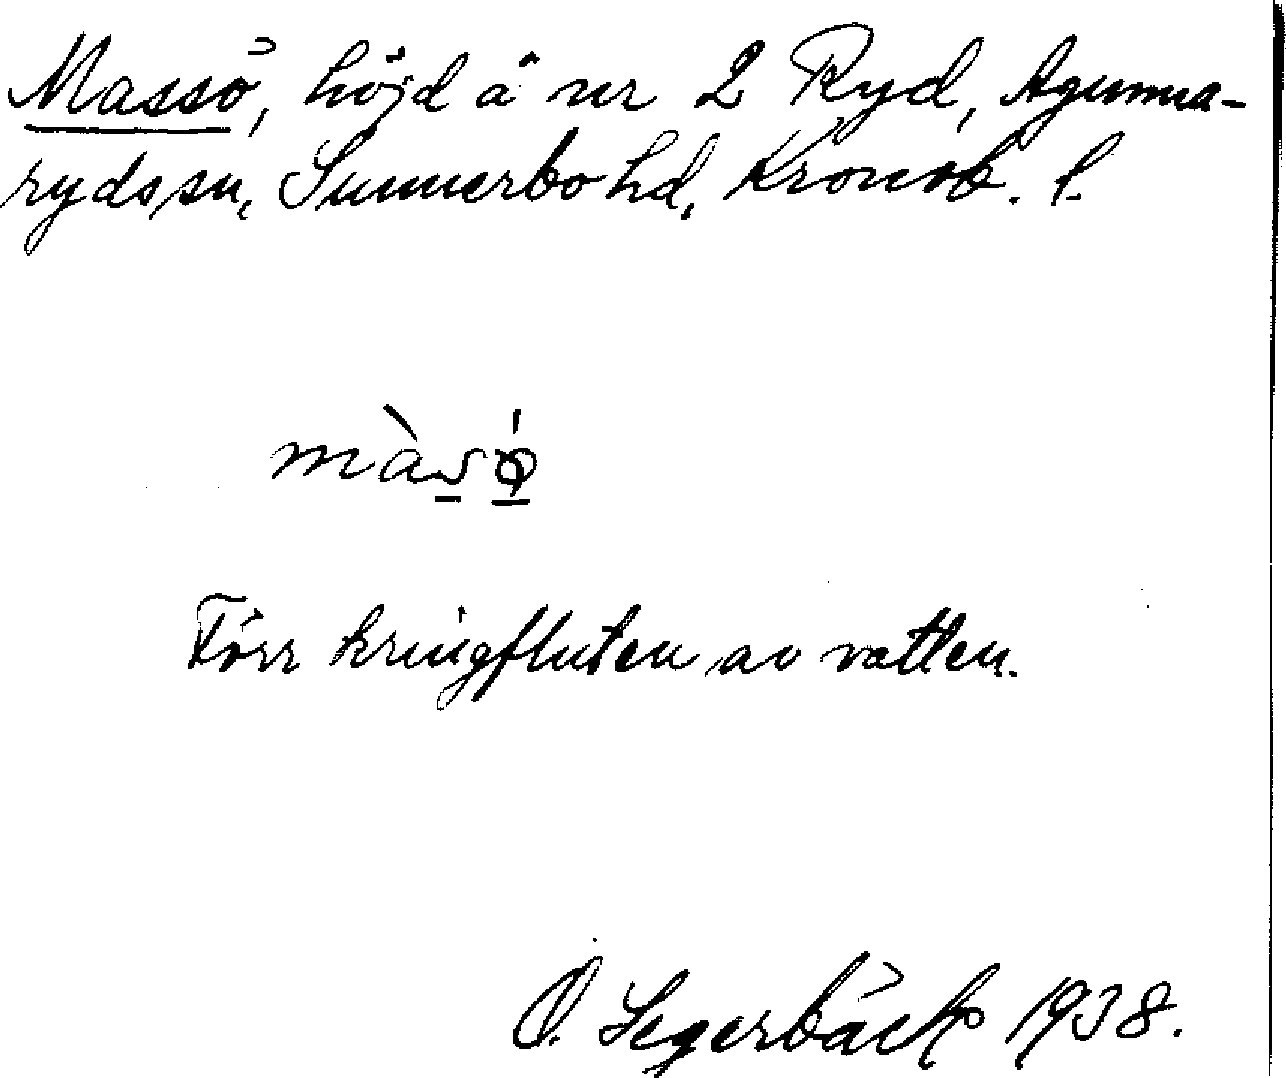 Massö, höjd å nr 2 Ryd, Agunna-
rydssn, Sunnerbo hd, Kronob. l.
Förr kringfluten av vatten.
O. Segerbäck 1938.